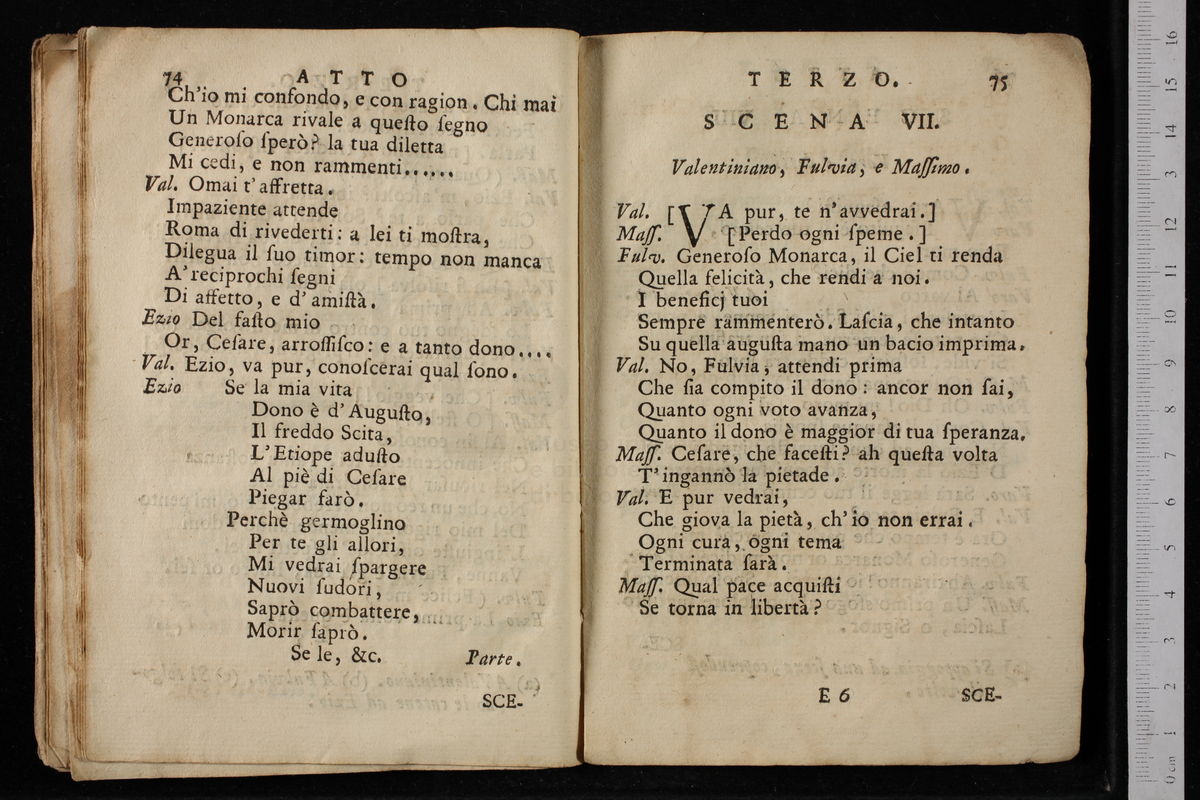 74 ATTO
Ch'io mi confondo, e con ragion. Chi mai
Un Monarca rivale a queſto ſegno
Generoſo ſperò? la tua diletta
Mi cedi, e non rammenti......
Val. Omai t'affretta.
Impaziente attende
Roma di rivederti: a lei ti moſtra,
Dilegua il ſuo timor: tempo non manca
A'reciprochi ſegni
Di affetto, e d'amiſtà.
Ezio Del faſto mio
Or, Ceſare, arroſſiſco: e a tanto dono....
Val. Ezio, va pur, conoſcerai qual ſono.
Ezio Se la mia vita
Dono è d'Auguſto,
Il freddo Scita,
L'Etiope aduſto
Al piè di Ceſare
Piegar farò.
Perchè germoglino
Per te gli allori,
Mi vedrai ſpargere
Nuovi ſudori,
Saprò combattere,
Morir ſaprò.
Se le, &c. Parte.
SCE-
TERZO. 75
SCENA VII.
Valentiniano, Fulvia, e Maſſimo.
Val. [VA pur, te n'avvedrai.]
Maſſ. [Perdo ogni ſpeme.]
Fulv. Generoſo Monarca, il Ciel ti renda
Quella felicità, che rendi a noi.
I beneficj tuoi
Sempre rammenterò. Laſcia, che intanto
Su quella auguſta mano un bacio imprima.
Val. No, Fulvia, attendi prima
Che ſia compito il dono: ancor non ſai,
Quanto ogni voto avanza,
Quanto il dono è maggior di tua ſperanza.
Maſſ. Ceſare, che faceſti? ah queſta volta
T'ingannò la pietade.
Val. E pur vedrai,
Che giova la pietà, ch'io non errai.
Ogni cura, ogni tema
Terminata ſarà.
Maſſ. Qual pace acquiſti
Se torna in libertà?
E 6 SCE-
0 cm 1 2 3 4 5 6 7 8 9 10 11 12 13 14 15 16